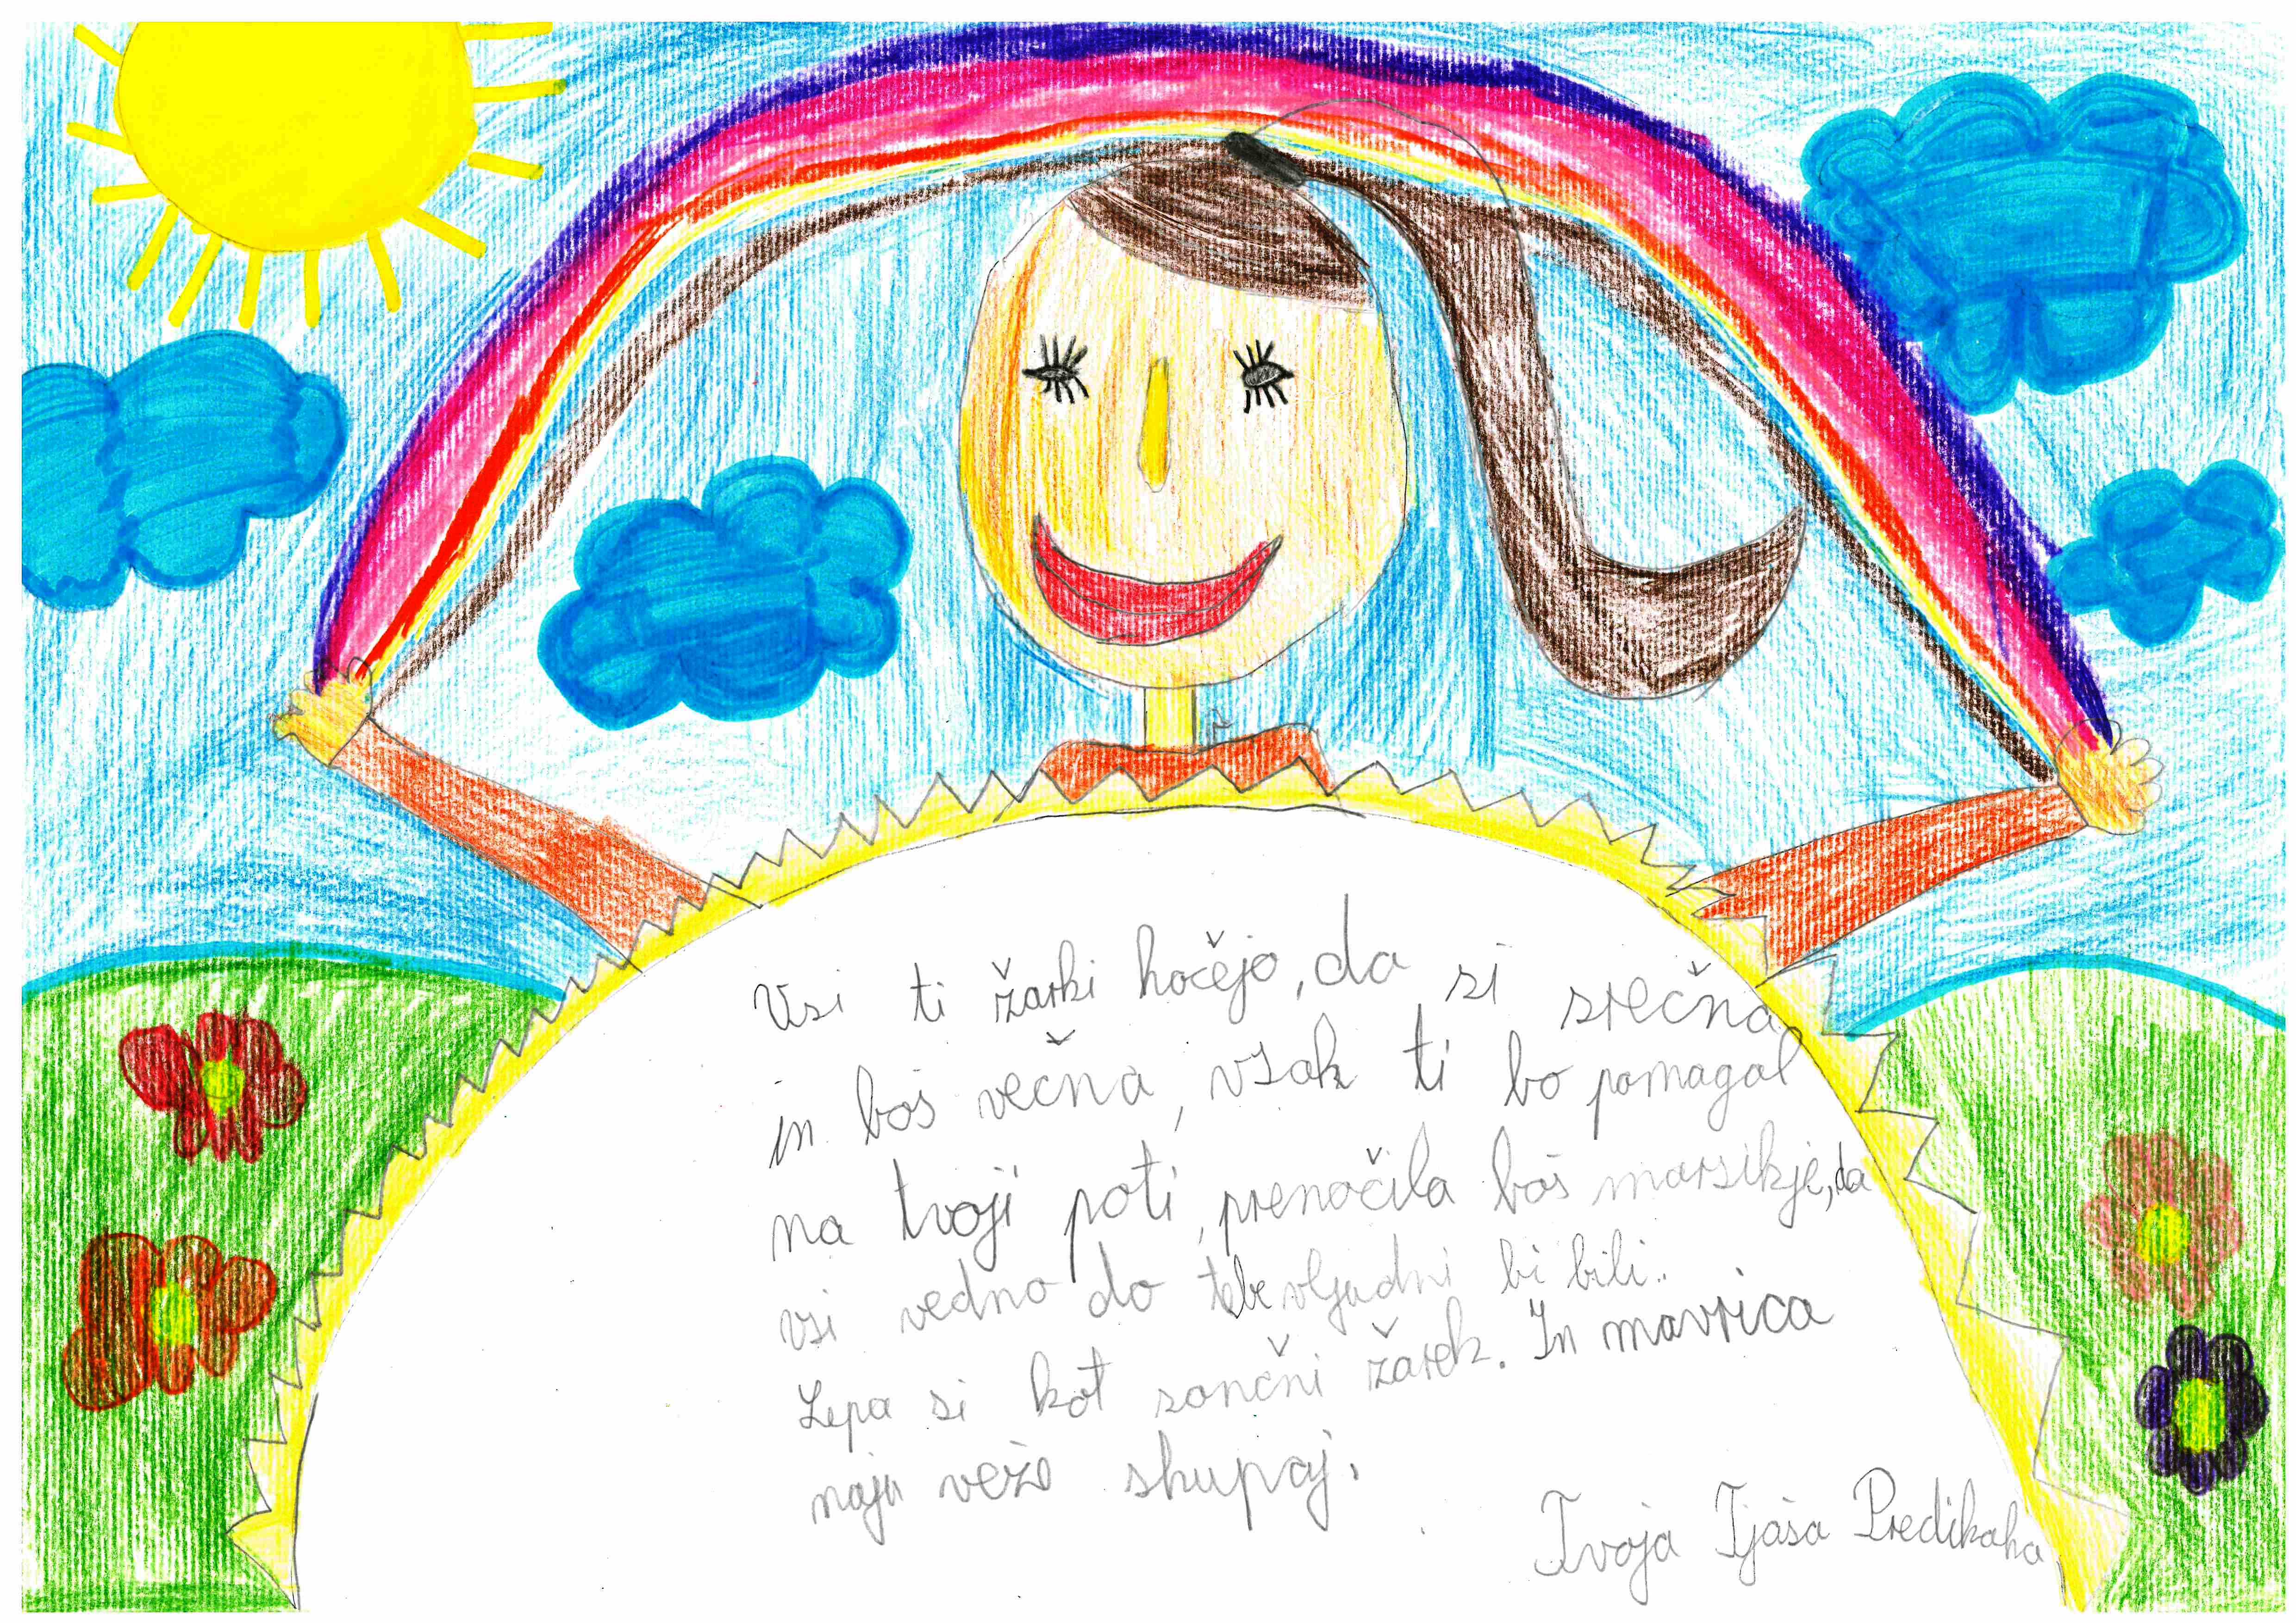 Vsi ti žarki hočejo, da si srečna
in boš večna, vsak ti bo pomagal
na tvoji poti, prenočila boš marsikje, da
vsi vedno do tebe vljudni bi bili..
Lepa si kot sončni žarek. In mavrica
naju veže skupaj.
Tvoja Tjaša Predikaka